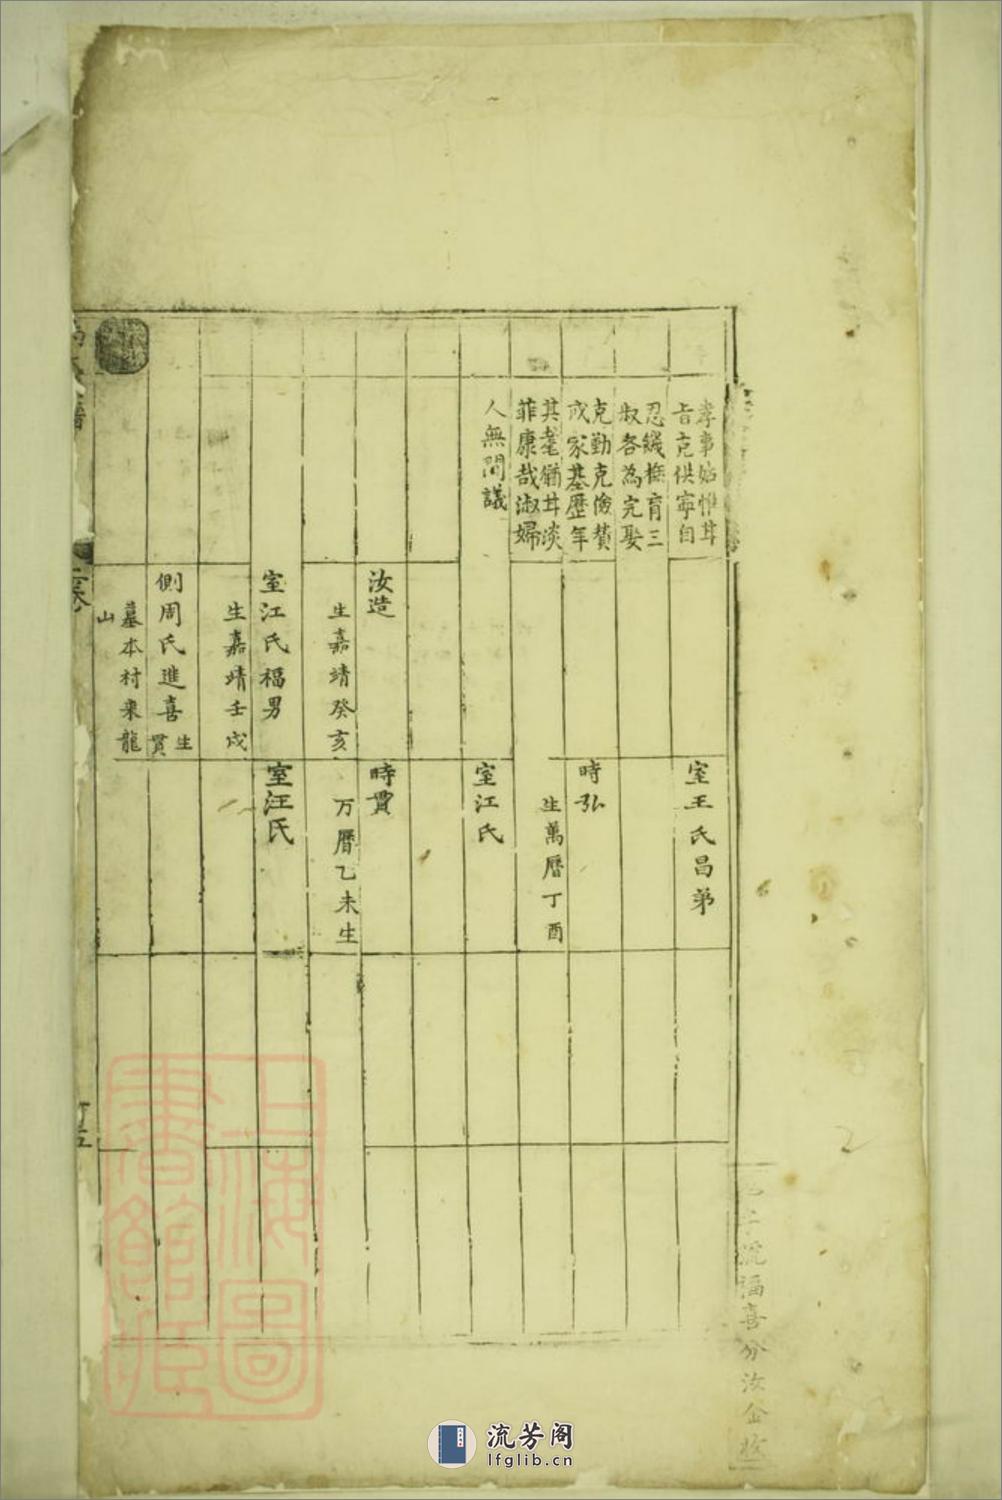 孝事姑惟甘
旨克供寧自
忍饑撫育三
叔各為完娶
克勤克儉贊
成家基歷年
其耄猶甘淡
菲康哉淑婦
人無間議
汝造
生嘉靖癸亥
室江氏福男
生嘉靖壬戌
側周氏進喜 生貫
墓本村来龍
山
室王氏昌弟
時弘
生萬曆丁酉
室江氏
時貫
万曆乙未生
室汪氏
福喜分汝金
上海圖
書館藏
流芳阁
lfglib.cn